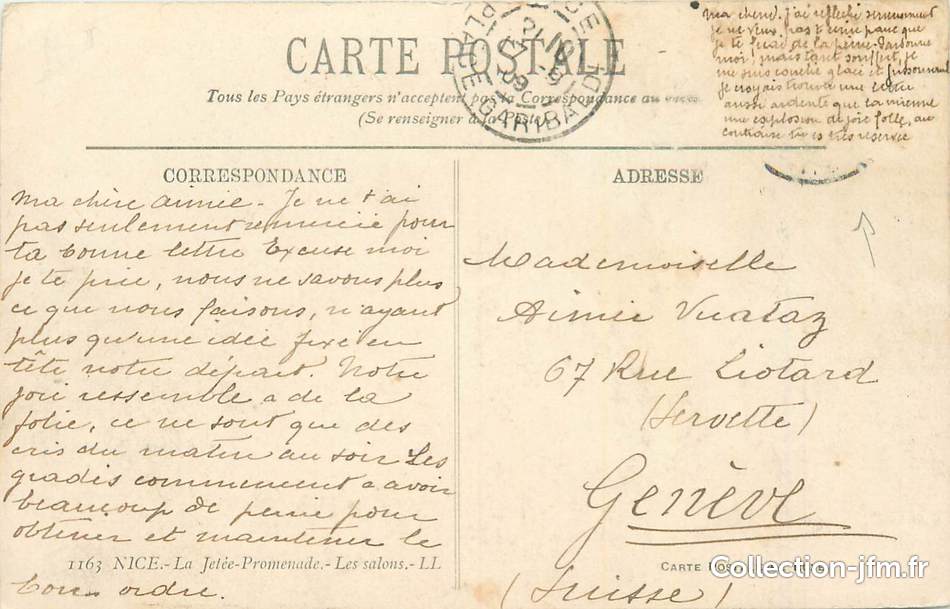 CARTE POSTALE
Tous les Pays étrangers n'acceptent pas la Correspondance au
(Se renseigner à la Poste)
PLACE GARIBALDI
21 10
09
ma chère, j'ai réfléchi
je ne veux pas t'écrire parce que
je te ferai de la peine. Pardonne
moi! mais tant souffert, je
me suis couché glacé et frissonnant
je croyais trouver une lettre
aussi ardente que la mienne
une explosion de joie folle, au
contraire tu es très reservée
CORRESPONDANCE
Ma chère Aimée - Je ne t'ai
pas seulement remercié pour
ta bonne lettre Excuse moi
je te prie, nous ne savons plus
ce que nous faisons, n'ayant
plus qu'une idée fixe en
tête notre départ. Notre
joie ressemble a de la
folie, ce ne sont que des
cris du matin au soir Les
gradés commencent a avoir
beaucoup de peine pour
obtenir et maintenir le
1163 NICE.- La Jetée-Promenade.- Les salons.- LL
bon ordre.
ADRESSE
Mademoiselle
Aimée Vuataz
67 Rue Liotard
(Servette)
Genève
(Suisse)
CARTE
Collection-jfm.fr